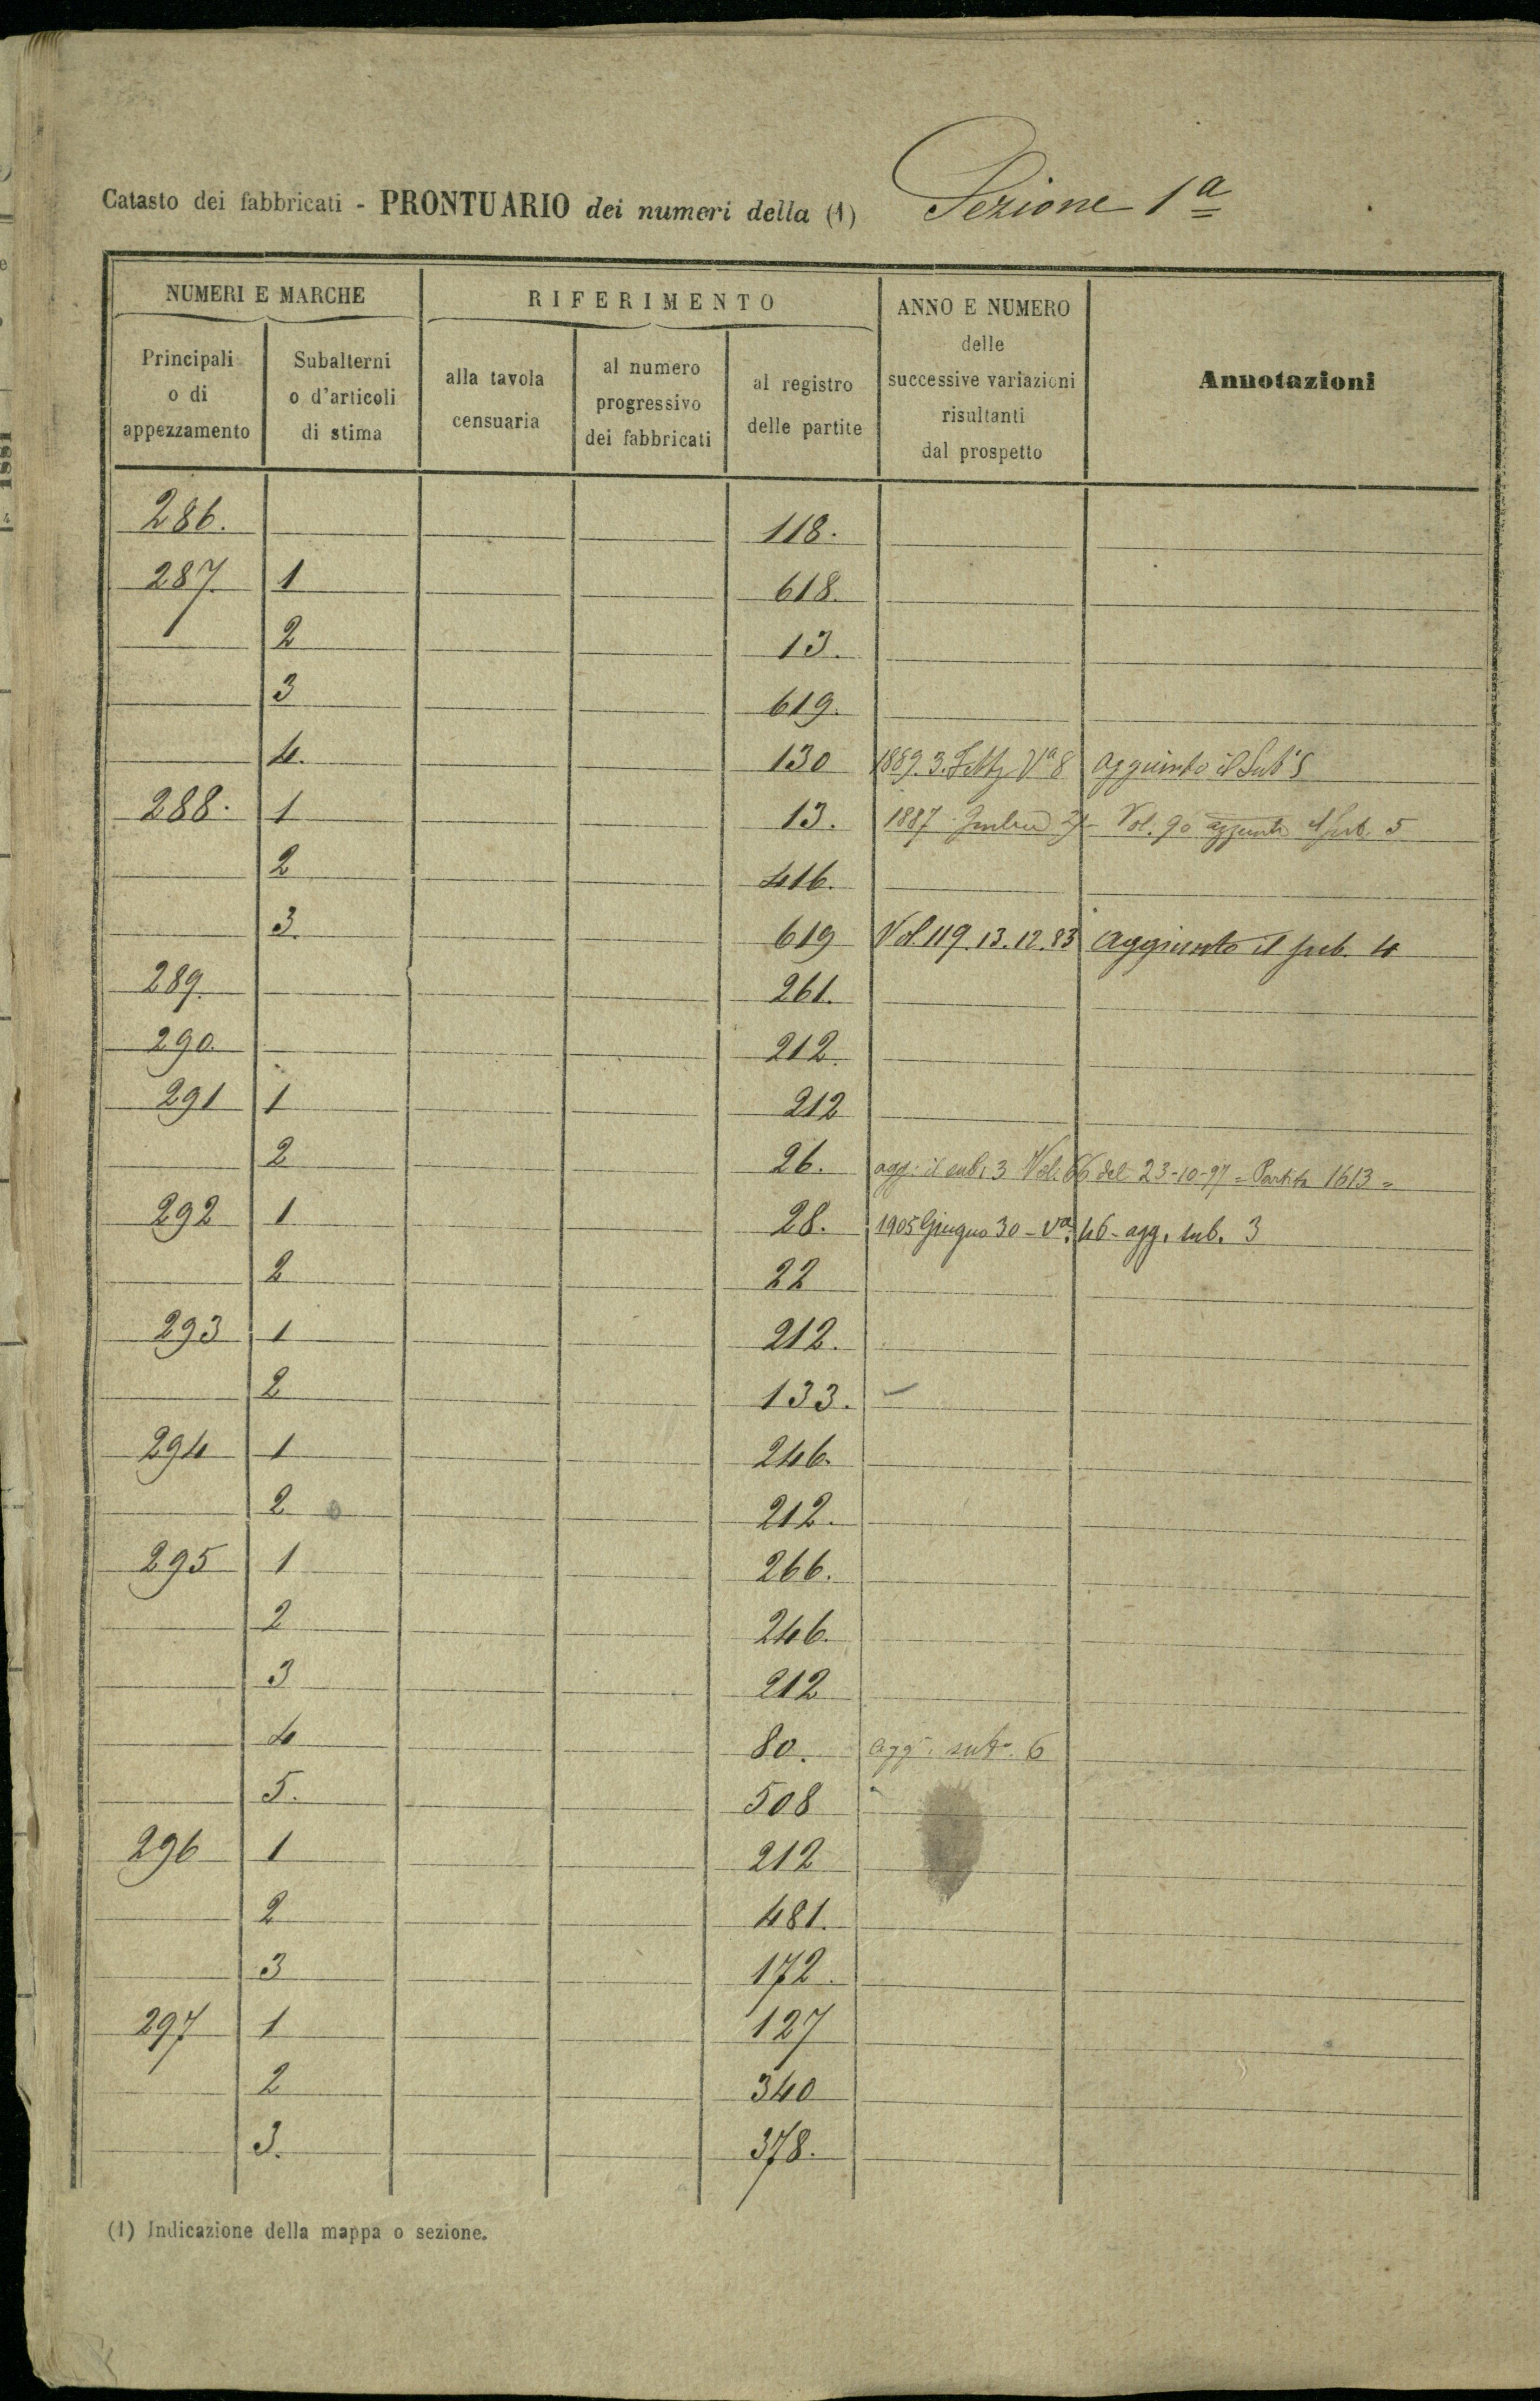 Catasto dei fabbricati - PRONTUARIO dei numeri della (1) Sezione 1a
NUMERI E MARCHE
RIFERIMENTO
ANNO E NUMERO
delle
successive variazioni
risultanti
dal prospetto
Annotazioni
Principali
o di
appezzamento
Subalterni
o d'articoli
di stima
alla tavola
censuaria
al numero
progressivo
dei fabbricati
al registro
delle partite
286. 118.
287. 1 618.
2 13.
3 619.
4. 130 1889. 3. Va 8 aggiunto il Sub 5
288. 1 13. 1887 Vol. 90 aggiunto il sub. 5
2 416.
3. 619 Vol 119. 13. 12. 83 aggiunto il sub. 4
289. 261.
290. 212.
291 1 212
2 26. agg. il sub. 3 Vol. 66 del 23-10-97 = Partita 1613 =
292 1 28. 1905 Giugno 30 - Va. 46 - agg. sub. 3
2 22
293 1 212.
2 133.
294 1 246.
2 212.
295 1 266.
2 246.
3 212
4 80. agg. sub. 6
5. 508
296 1 212
2 481.
3 172.
297 1 127
2 340
3. 378.
(1) Indicazione della mappa o sezione.